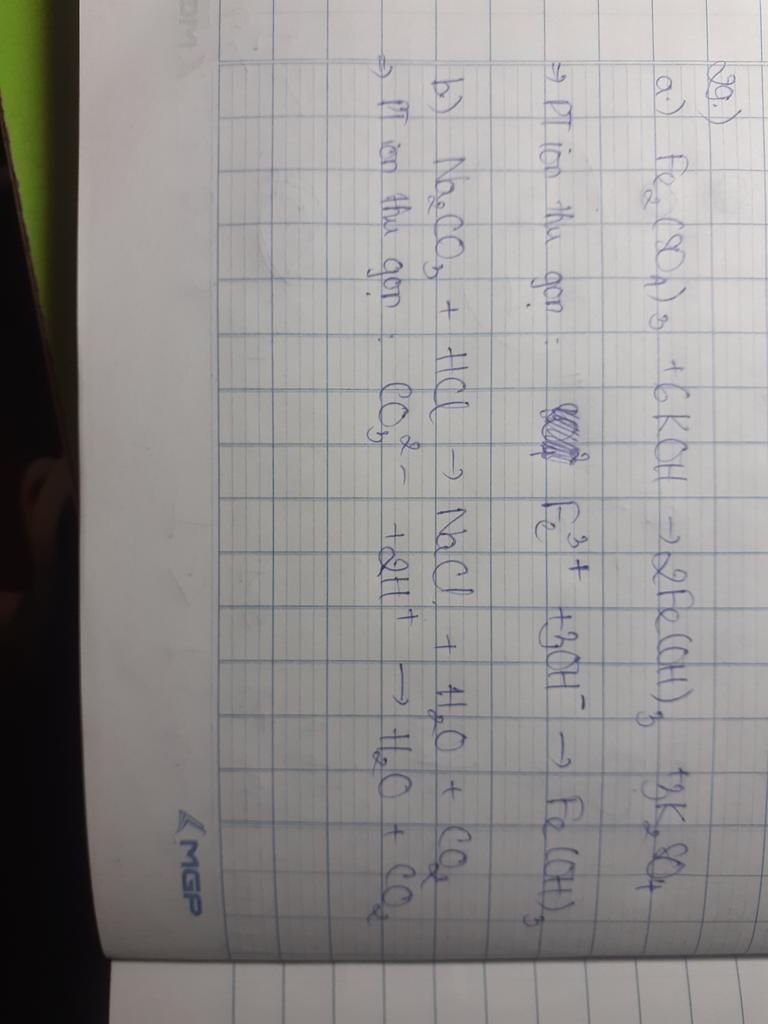 29.)
a.) Fe₂(SO₄)₃ + 6KOH → 2Fe(OH)₃ + 3K₂SO₄
⇒ PT ion thu gọn : Fe³⁺ + 3OH⁻ → Fe(OH)₃
b) Na₂CO₃ + HCl → NaCl + H₂O + CO₂
⇒ PT ion thu gọn : CO₃²⁻ + 2H⁺ → H₂O + CO₂
MGP